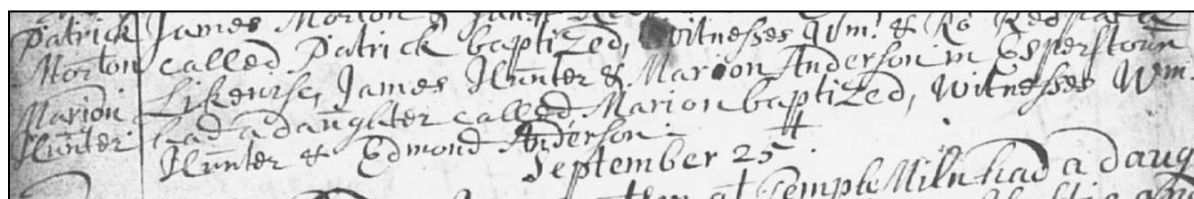 Patrick James Morton &
Morton called Patrick baptized, Witnesses Wm: & Ro Redpath
Likewise, James Hunter & Marion Anderson in Esperstoun
Marion had a daughter called Marion baptized, Witnesses Wm
Hunter Hunter & Edmond Anderson.
September 25
at Temple Miln had a daug